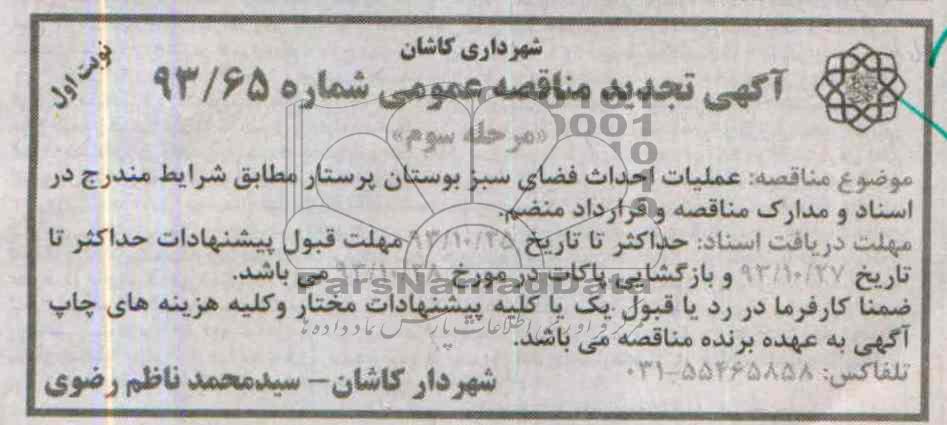 شهرداری کاشان
نوبت اول
آگهی تجدید مناقصه عمومی شماره ۹۳/۶۵
«مرحله سوم»
موضوع مناقصه: عملیات احداث فضای سبز بوستان پرستار مطابق شرایط مندرج در
اسناد و مدارک مناقصه و قرارداد منضم.
مهلت دریافت اسناد: حداکثر تا تاریخ ۹۳/۱۰/۲۵ مهلت قبول پیشنهادات حداکثر تا
تاریخ ۹۳/۱۰/۲۷ و بازگشایی پاکات در مورخ ۹۳/۱۰/۲۸ می باشد.
ParsNamadData
ضمنا کارفرما در رد یا قبول یک یا کلیه پیشنهادات مختار وکلیه هزینه های چاپ
آگهی به عهده برنده مناقصه می باشد.
تلفاکس: ۵۵۴۶۵۸۵۸-۰۳۱
شهردار کاشان – سیدمحمد ناظم رضوی